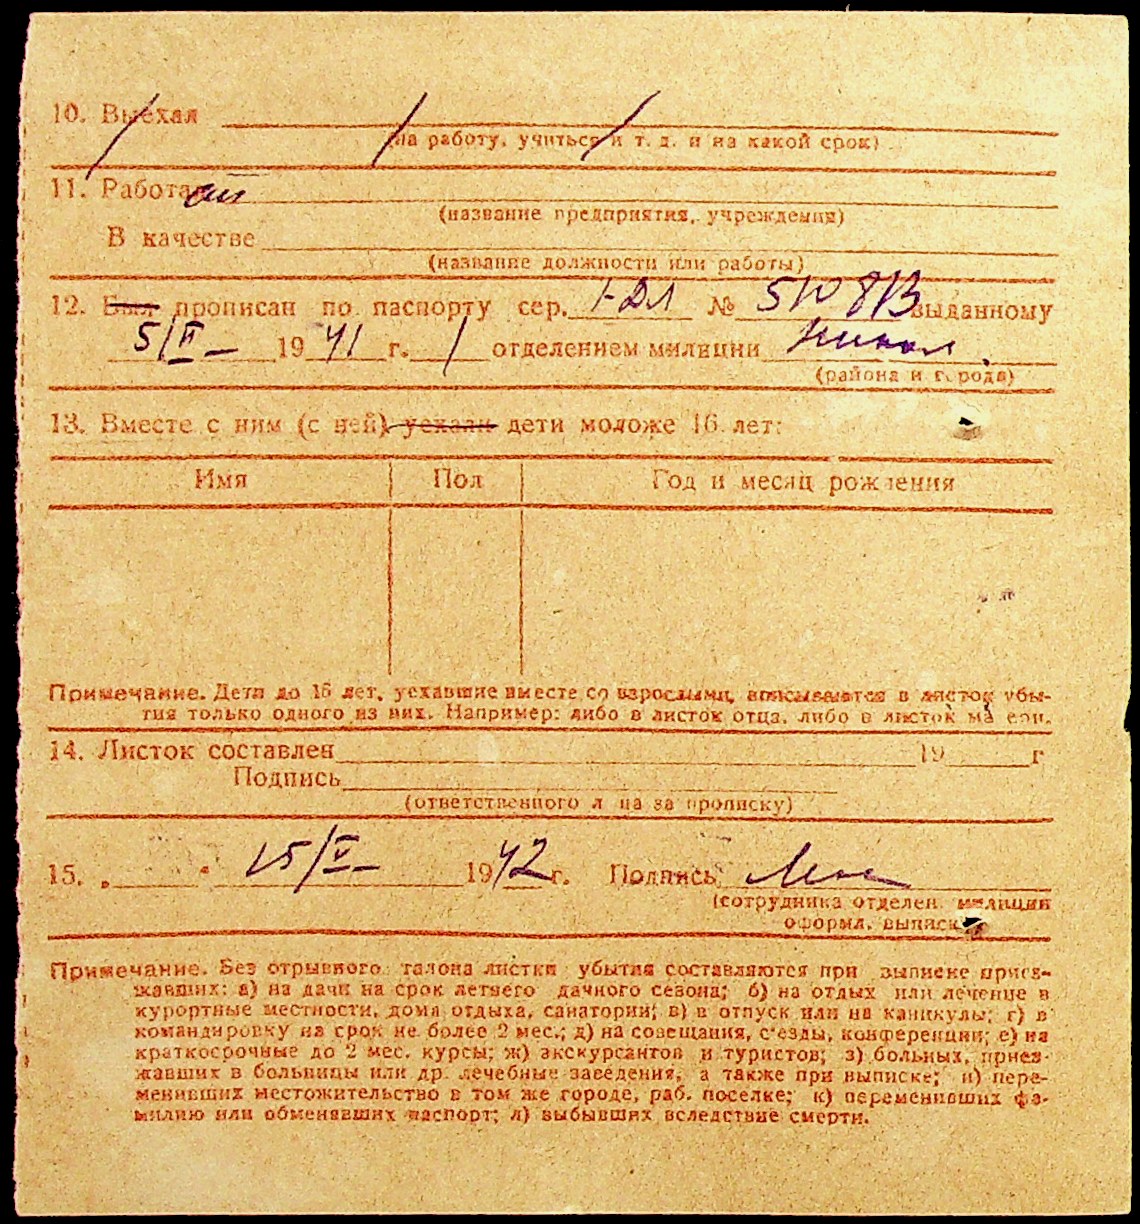 10. Выехал
(на работу, учиться и т. д. и на какой срок)
11. Работал
(название предприятия, учреждения)
В качестве
(название должности или работы)
12. Был прописан по паспорту сер. № выданному
5/II 1941 г. 1 отделением милиции
(района и города)
13. Вместе с ним (с ней) уехали дети моложе 16 лет:
Имя Пол Год и месяц рождения
Примечание. Дети до 16 лет, уехавшие вместе со взрослыми, вписываются в листок убы-
тия только одного из них. Например: либо в листок отца, либо в листок матери.
14. Листок составлен 19 г
Подпись
(ответственного лица за прописку)
15. „ “ 15/V 1942 г. Подпись
(сотрудника отделен. милиции
оформл. выписку
Примечание. Без отрывного талона листки убытия составляются при выписке приез-
жавших: а) на дачи на срок летнего дачного сезона; б) на отдых или лечение в
курортные местности, дома отдыха, санатории; в) в отпуск или на каникулы; г) в
командировку на срок не более 2 мес.; д) на совещания, с'езды, конференции; е) на
краткосрочные до 2 мес. курсы; ж) экскурсантов и туристов; з) больных, приез-
жавших в больницы или др. лечебные заведения, а также при выписке; и) пере-
менивших местожительство в том же городе, раб. поселке; к) переменивших фа-
милию или обменявших паспорт; л) выбывших вследствие смерти.